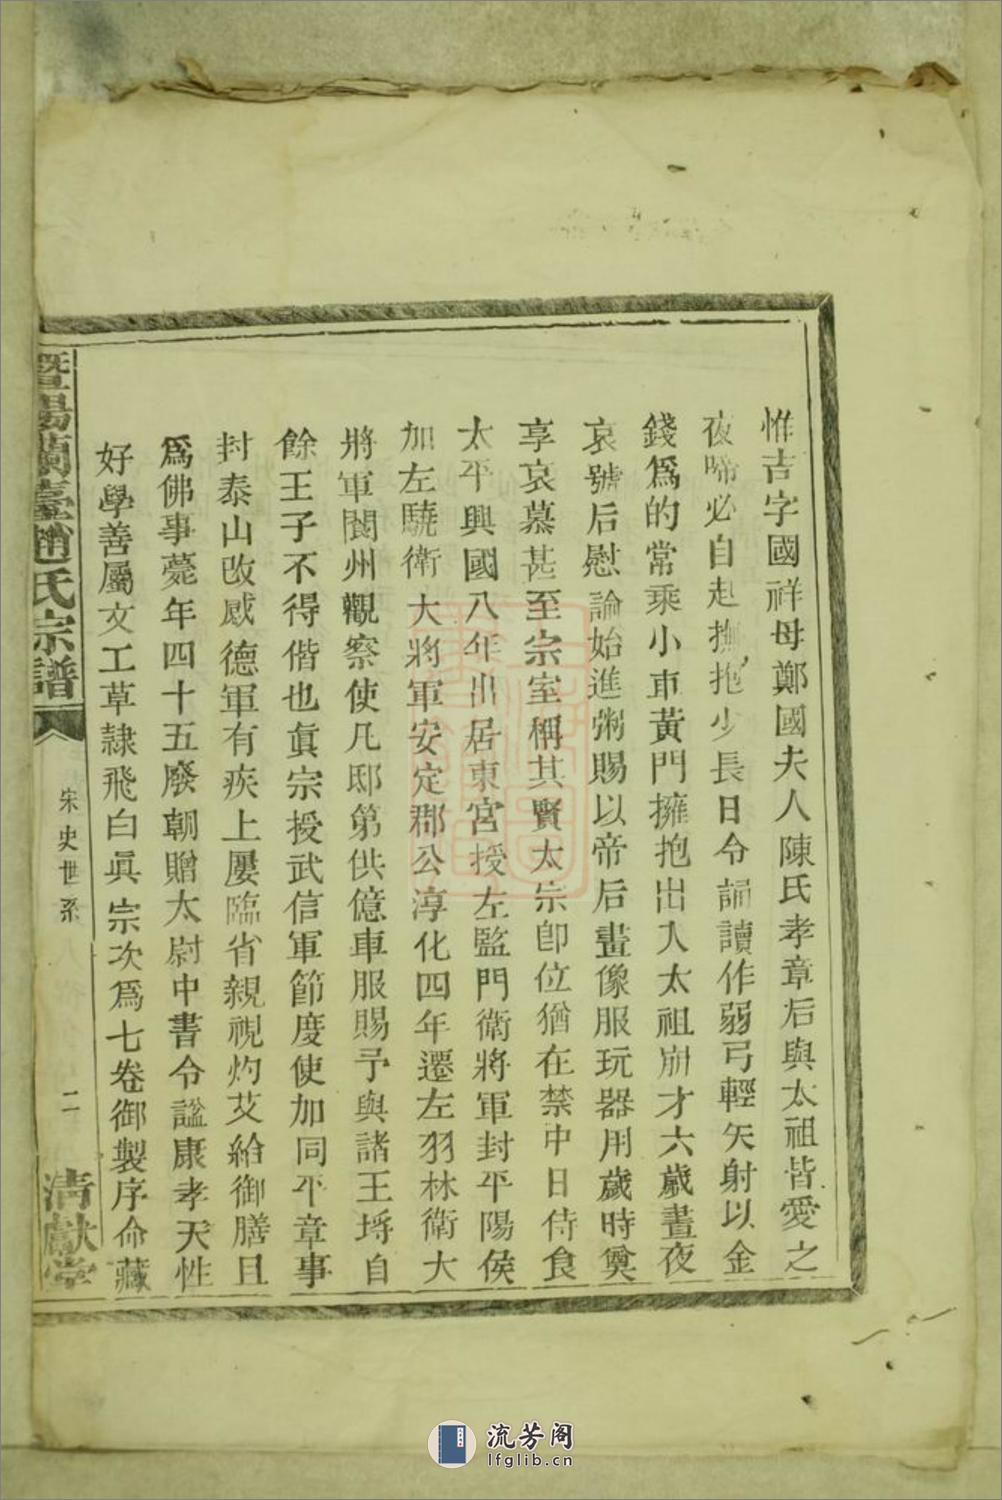 惟吉字國祥母鄭國夫人陳氏孝章后與太祖皆愛之
夜啼必自起撫抱少長日令誦讀作弱弓輕矢射以金
錢爲的常乘小車黃門擁抱出入太祖崩才六歲晝夜
哀號后慰論始進粥賜以帝后畫像服玩器用歲時奠
享哀慕甚至宗室稱其賢太宗卽位猶在禁中日侍食
太平興國八年出居東宮授左監門衛將軍封平陽侯
加左驍衛大將軍安定郡公淳化四年遷左羽林衛大
將軍閬州觀察使凡邸第供億車服賜予與諸王埒自
餘王子不得偕也眞宗授武信軍節度使加同平章事
封泰山改感德軍有疾上屢臨省親視灼艾給御膳且
爲佛事薨年四十五廢朝贈太尉中書令諡康孝天性
好學善屬文工草隸飛白眞宗次爲七卷御製序命藏
暨陽蘭臺趙氏宗譜
宋史世系
二
清獻堂
流芳阁
lfglib.cn